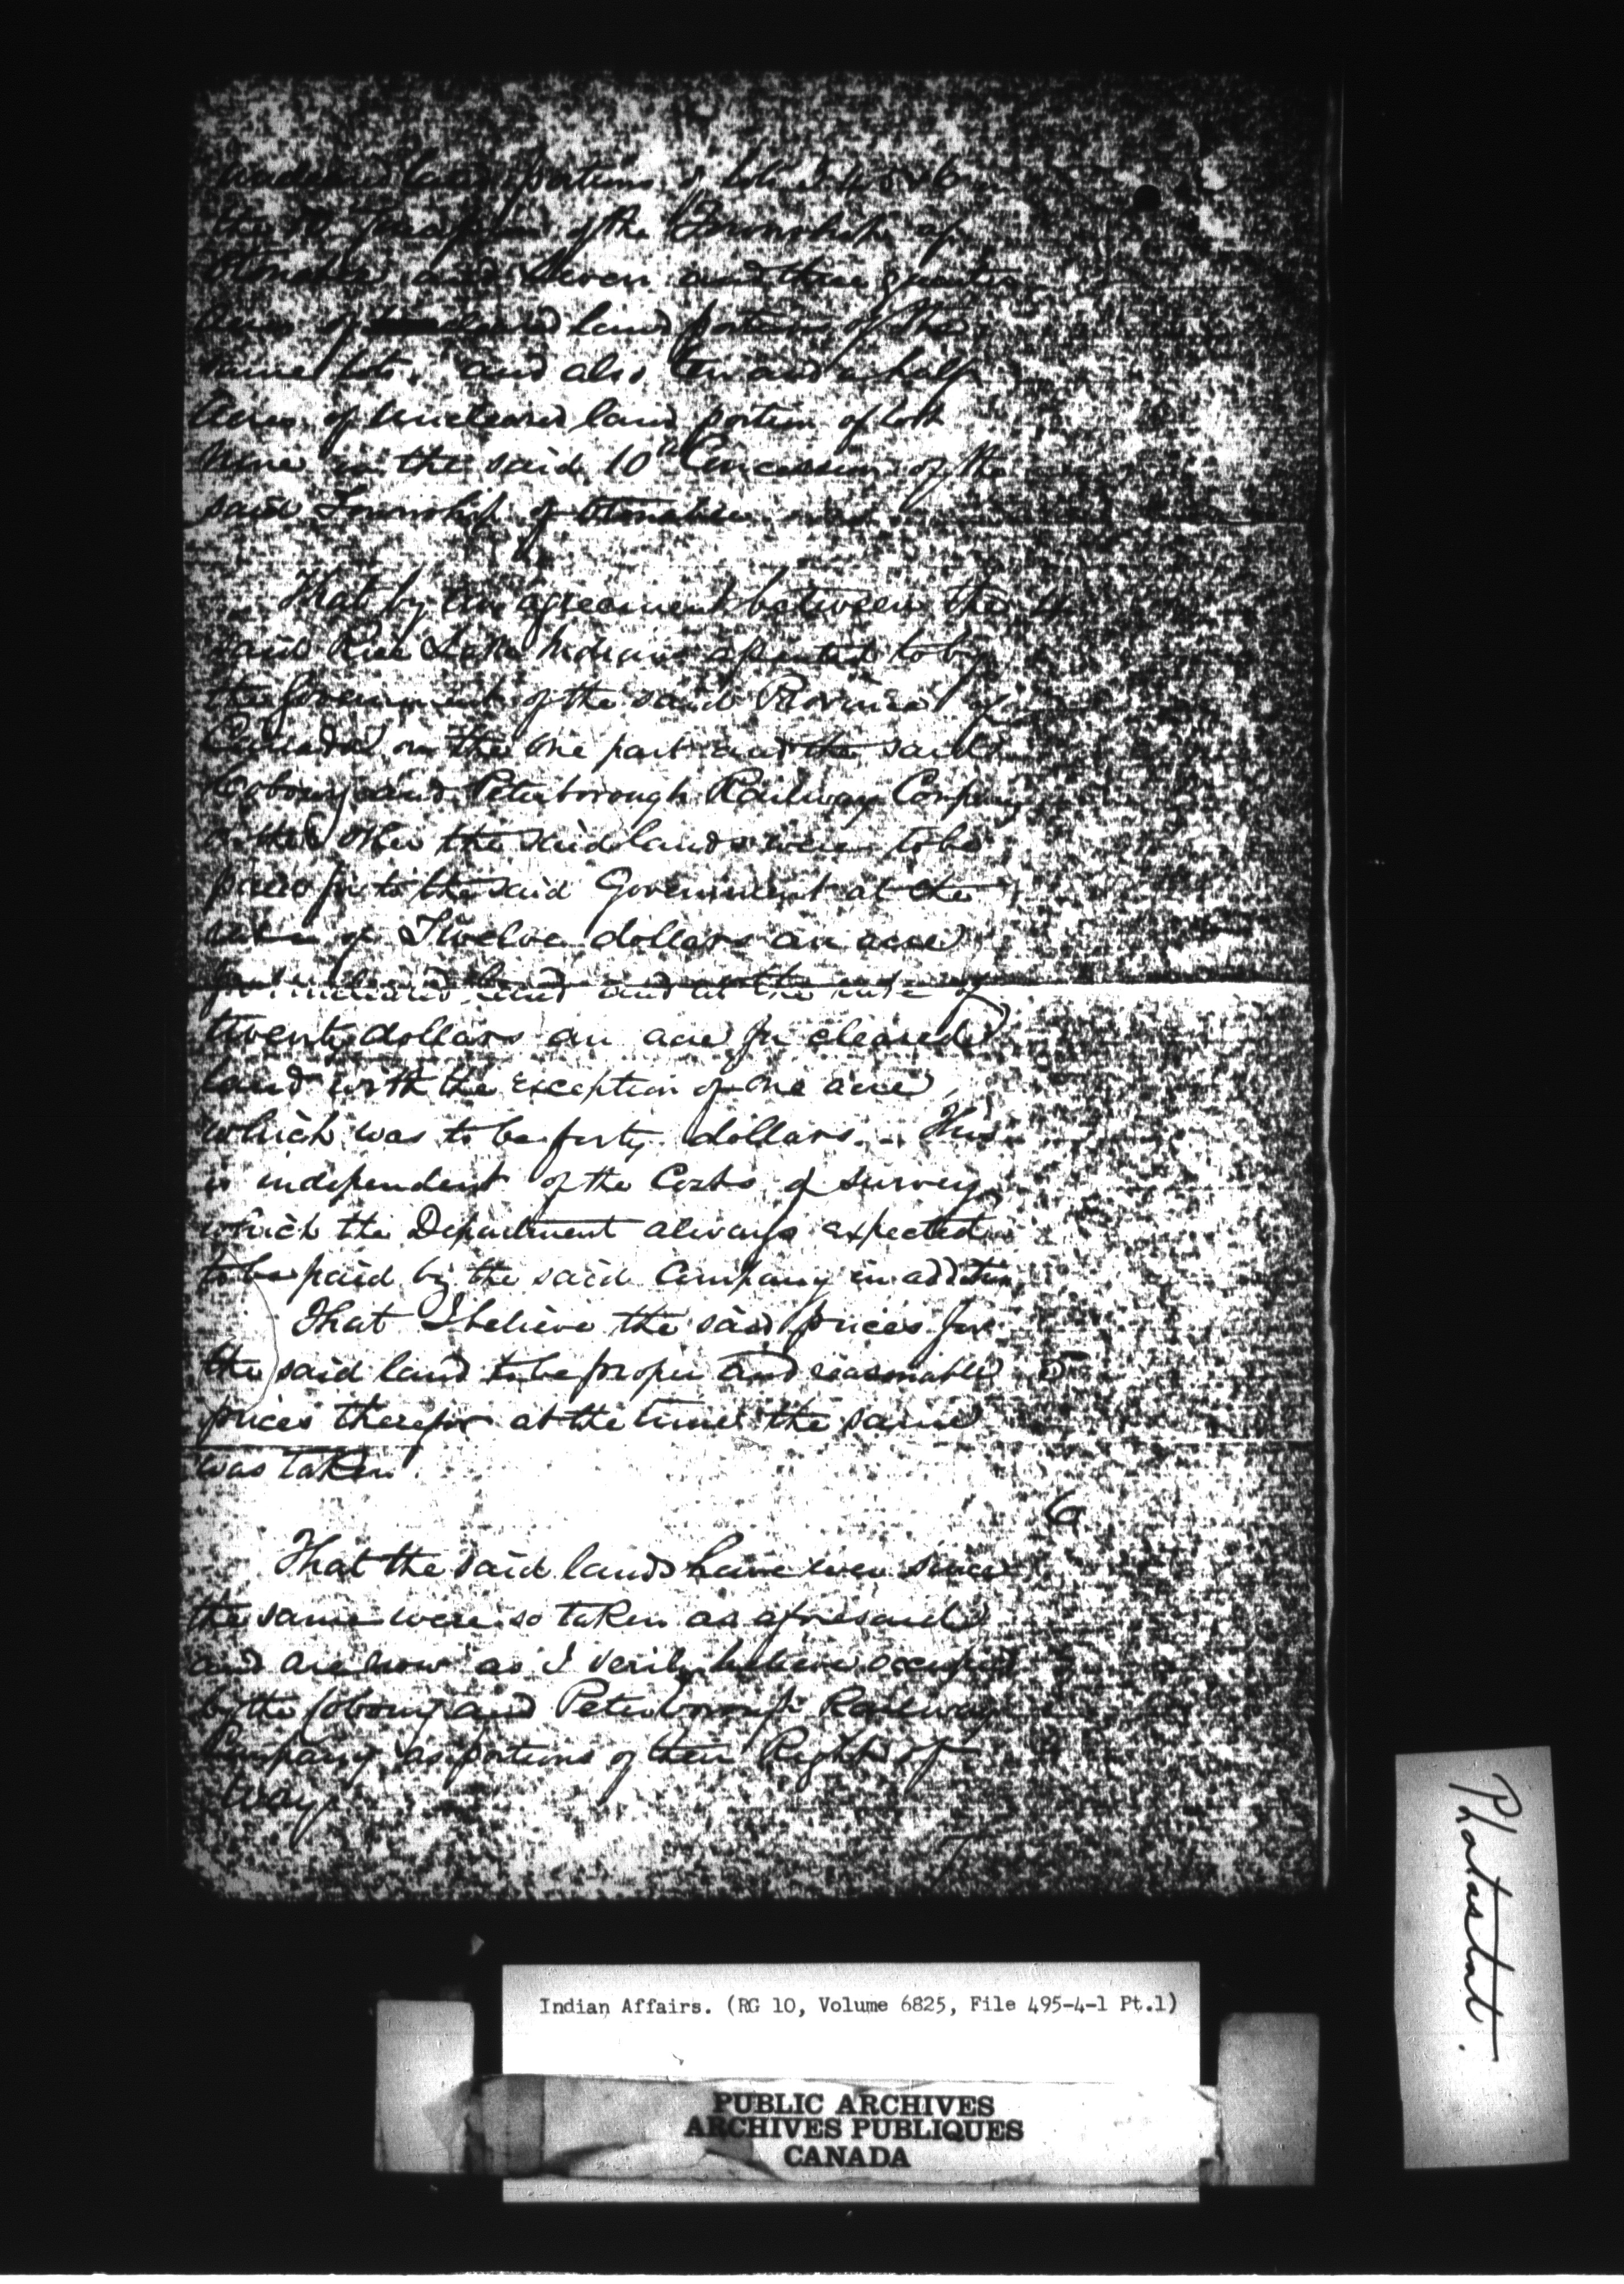 uncleared land portions of lots 5 & 6 in
the 10th Concession of the Township of
Otonabee and seven and three quarter
acres of cleared land portions of the
same lots. and also ten and a half
Acres of uncleared land portion of lot
Nine in the said 10th Concession of the
said Township of Otonabee
That by an agreement between the 4
said Rice Lake Indians assented to by
the Government of the said Province of
Canada on the one part and the said
Cobourg and Peterborough Railway Company
on the other the said lands were to be
paid for to the said Government at the
rate of Twelve dollars an acre
for uncleared land and at the rate of
twenty dollars an acre for cleared
land with the exception of one acre
which was to be forty dollars. This
is independent of the Costs of survey
which the Department always expected
to be paid by the said Company in addition
That I believe the said prices for
the said land to be proper and reasonable 5
prices therefor at the time the same
was taken.
6
That the said lands have ever since
the same were so taken as aforesaid
and are now as I verily believe occupied
by the Cobourg and Peterborough Railway
Company as portions of their Right of
Way
Photostat.
Indian Affairs. (RG 10, Volume 6825, File 495-4-1 Pt.1)
PUBLIC ARCHIVES
ARCHIVES PUBLIQUES
CANADA